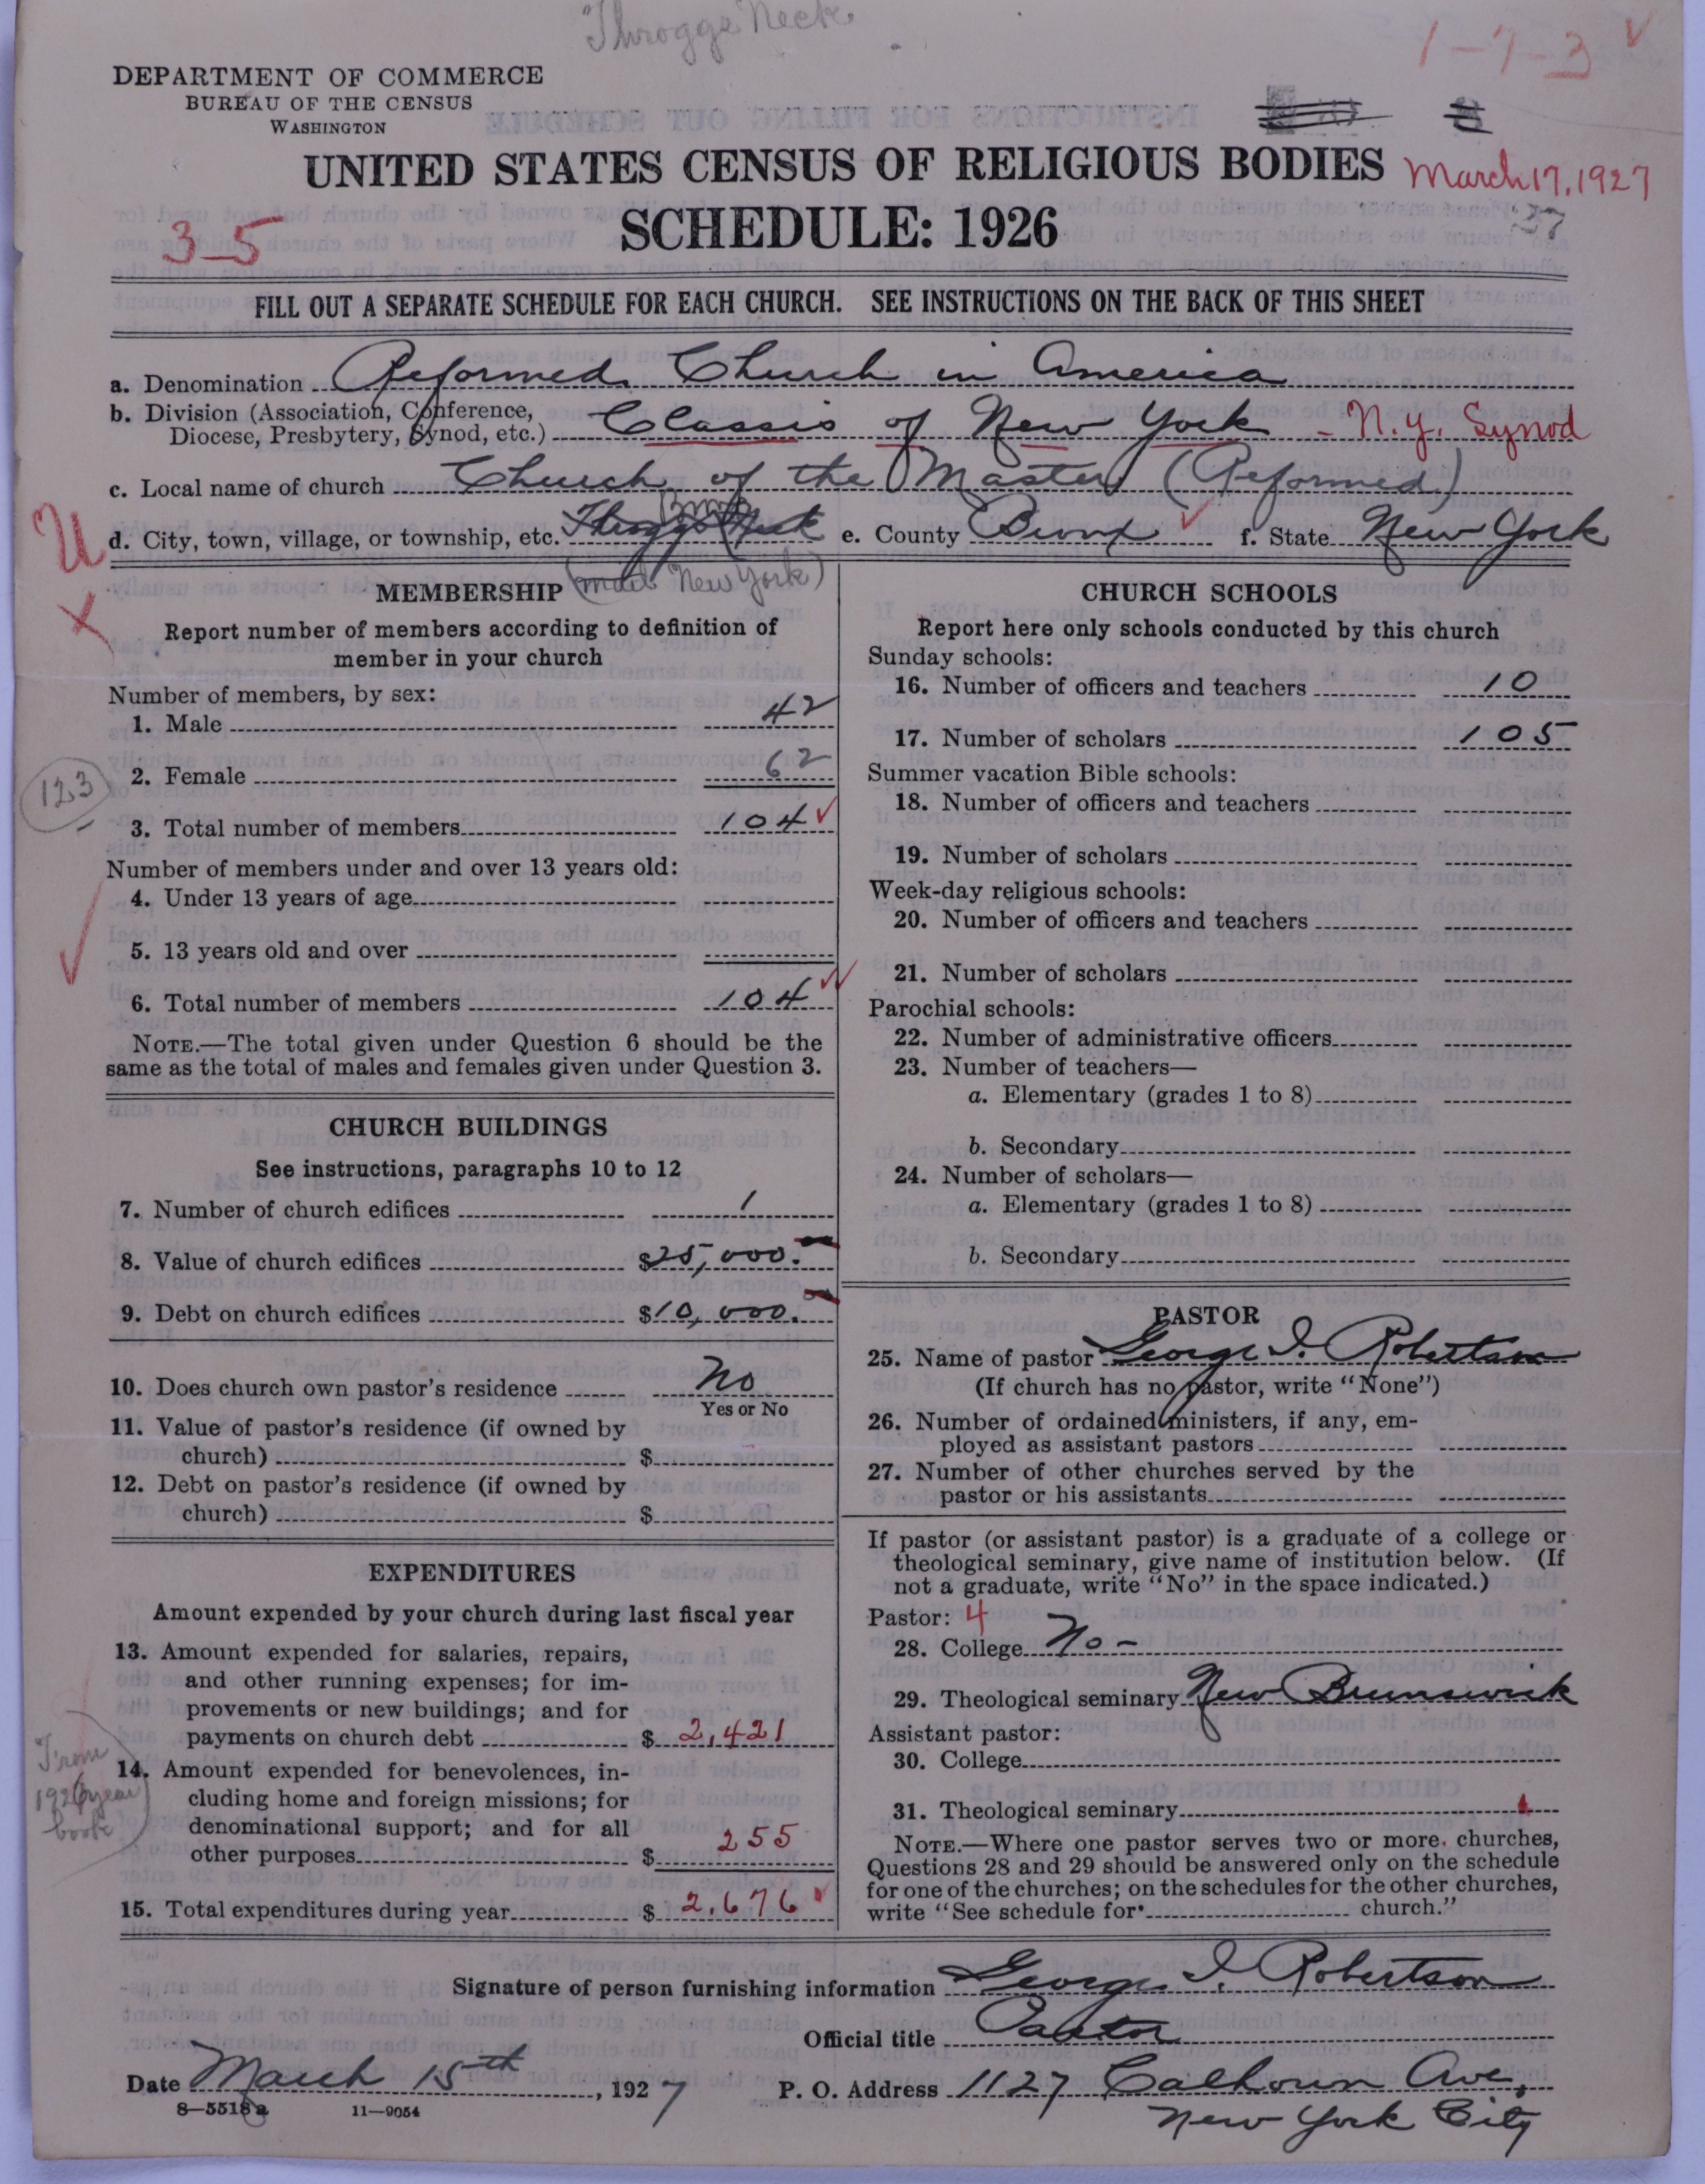 Throggs Neck
1-7-3
DEPARTMENT OF COMMERCE
BUREAU OF THE CENSUS
WASHINGTON
UNITED STATES CENSUS OF RELIGIOUS BODIES
March 17, 1927
SCHEDULE: 1926
37
3-5
FILL OUT A SEPARATE SCHEDULE FOR EACH CHURCH. SEE INSTRUCTIONS ON THE BACK OF THIS SHEET
a. Denomination Reformed Church in America
b. Division (Association, Conference,
Diocese, Presbytery, Synod, etc.) Classis of New York - N.Y. Synod
c. Local name of church Church of the Master (Reformed)
U
d. City, town, village, or township, etc. Throggs Neck Bronx e. County Bronx f. State New York
X
MEMBERSHIP
New York)
Report number of members according to definition of
member in your church
Number of members, by sex:
1. Male 42
2. Female 62
123
3. Total number of members 104
Number of members under and over 13 years old:
4. Under 13 years of age
5. 13 years old and over
6. Total number of members 104
NOTE.—The total given under Question 6 should be the
same as the total of males and females given under Question 3.
CHURCH BUILDINGS
See instructions, paragraphs 10 to 12
7. Number of church edifices 1
8. Value of church edifices $25,000.
9. Debt on church edifices $10,000.
10. Does church own pastor's residence No
Yes or No
11. Value of pastor's residence (if owned by
church) $
12. Debt on pastor's residence (if owned by
church) $
EXPENDITURES
Amount expended by your church during last fiscal year
13. Amount expended for salaries, repairs,
and other running expenses; for im-
provements or new buildings; and for
payments on church debt $ 2,421
From
1926 year
book
14. Amount expended for benevolences, in-
cluding home and foreign missions; for
denominational support; and for all
other purposes $ 255
15. Total expenditures during year $ 2,676
CHURCH SCHOOLS
Report here only schools conducted by this church
Sunday schools:
16. Number of officers and teachers 10
17. Number of scholars 105
Summer vacation Bible schools:
18. Number of officers and teachers
19. Number of scholars
Week-day religious schools:
20. Number of officers and teachers
21. Number of scholars
Parochial schools:
22. Number of administrative officers
23. Number of teachers—
a. Elementary (grades 1 to 8)
b. Secondary
24. Number of scholars—
a. Elementary (grades 1 to 8)
b. Secondary
PASTOR
25. Name of pastor George I. Robertson
(If church has no pastor, write "None")
26. Number of ordained ministers, if any, em-
ployed as assistant pastors
27. Number of other churches served by the
pastor or his assistants
If pastor (or assistant pastor) is a graduate of a college or
theological seminary, give name of institution below. (If
not a graduate, write "No" in the space indicated.)
Pastor: 4
28. College No -
29. Theological seminary New Brunswick
Assistant pastor:
30. College
31. Theological seminary
NOTE.—Where one pastor serves two or more churches,
Questions 28 and 29 should be answered only on the schedule
for one of the churches; on the schedules for the other churches,
write "See schedule for church."
Signature of person furnishing information George I. Robertson
Official title Pastor
Date March 15th, 1927
P. O. Address 1127 Calhoun Ave,
New York City
8—5518a 11—9054